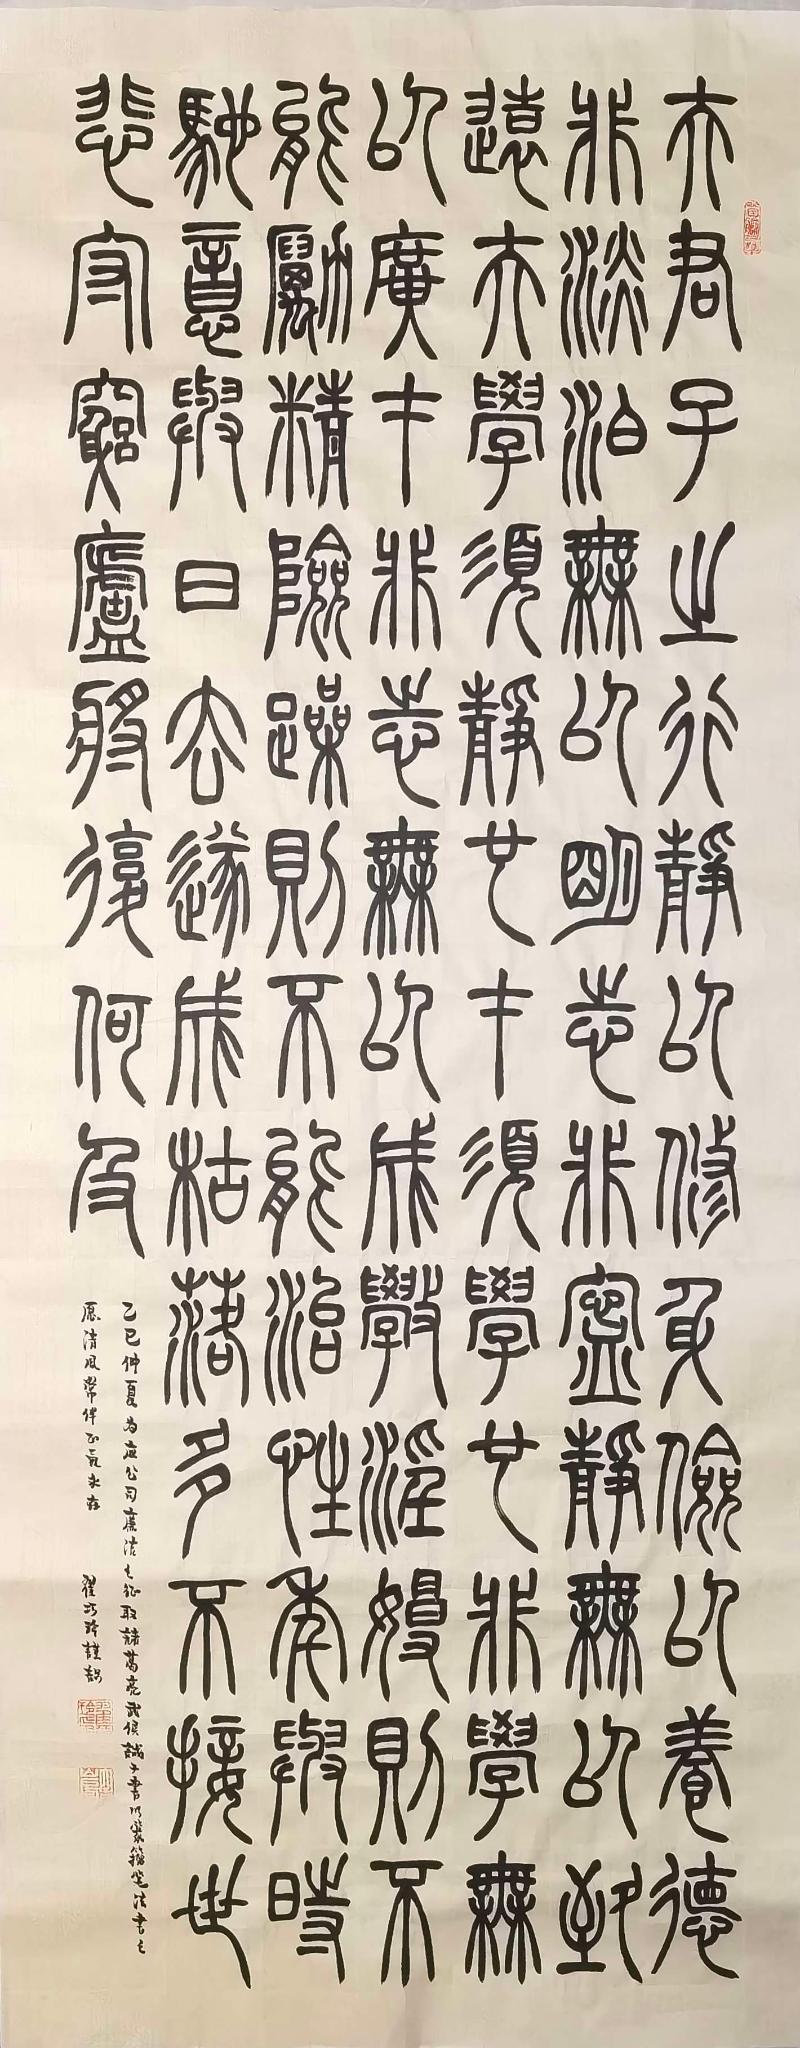 夫君子之行靜以修身儉以養德
非淡泊無以明志非寧靜無以致
遠夫學須靜也才須學也非學無
以廣才非志無以成斆淫嫚則不
能勵精險躁則不能治性年與時
馳意與日去遂成枯落多不接世
悲守窮廬將復何及
乙巳仲夏为应公司廉洁之征取諸葛亮武侯誡子書以篆籀笔法书之
愿清风常伴正气永存 翟巧玲謹